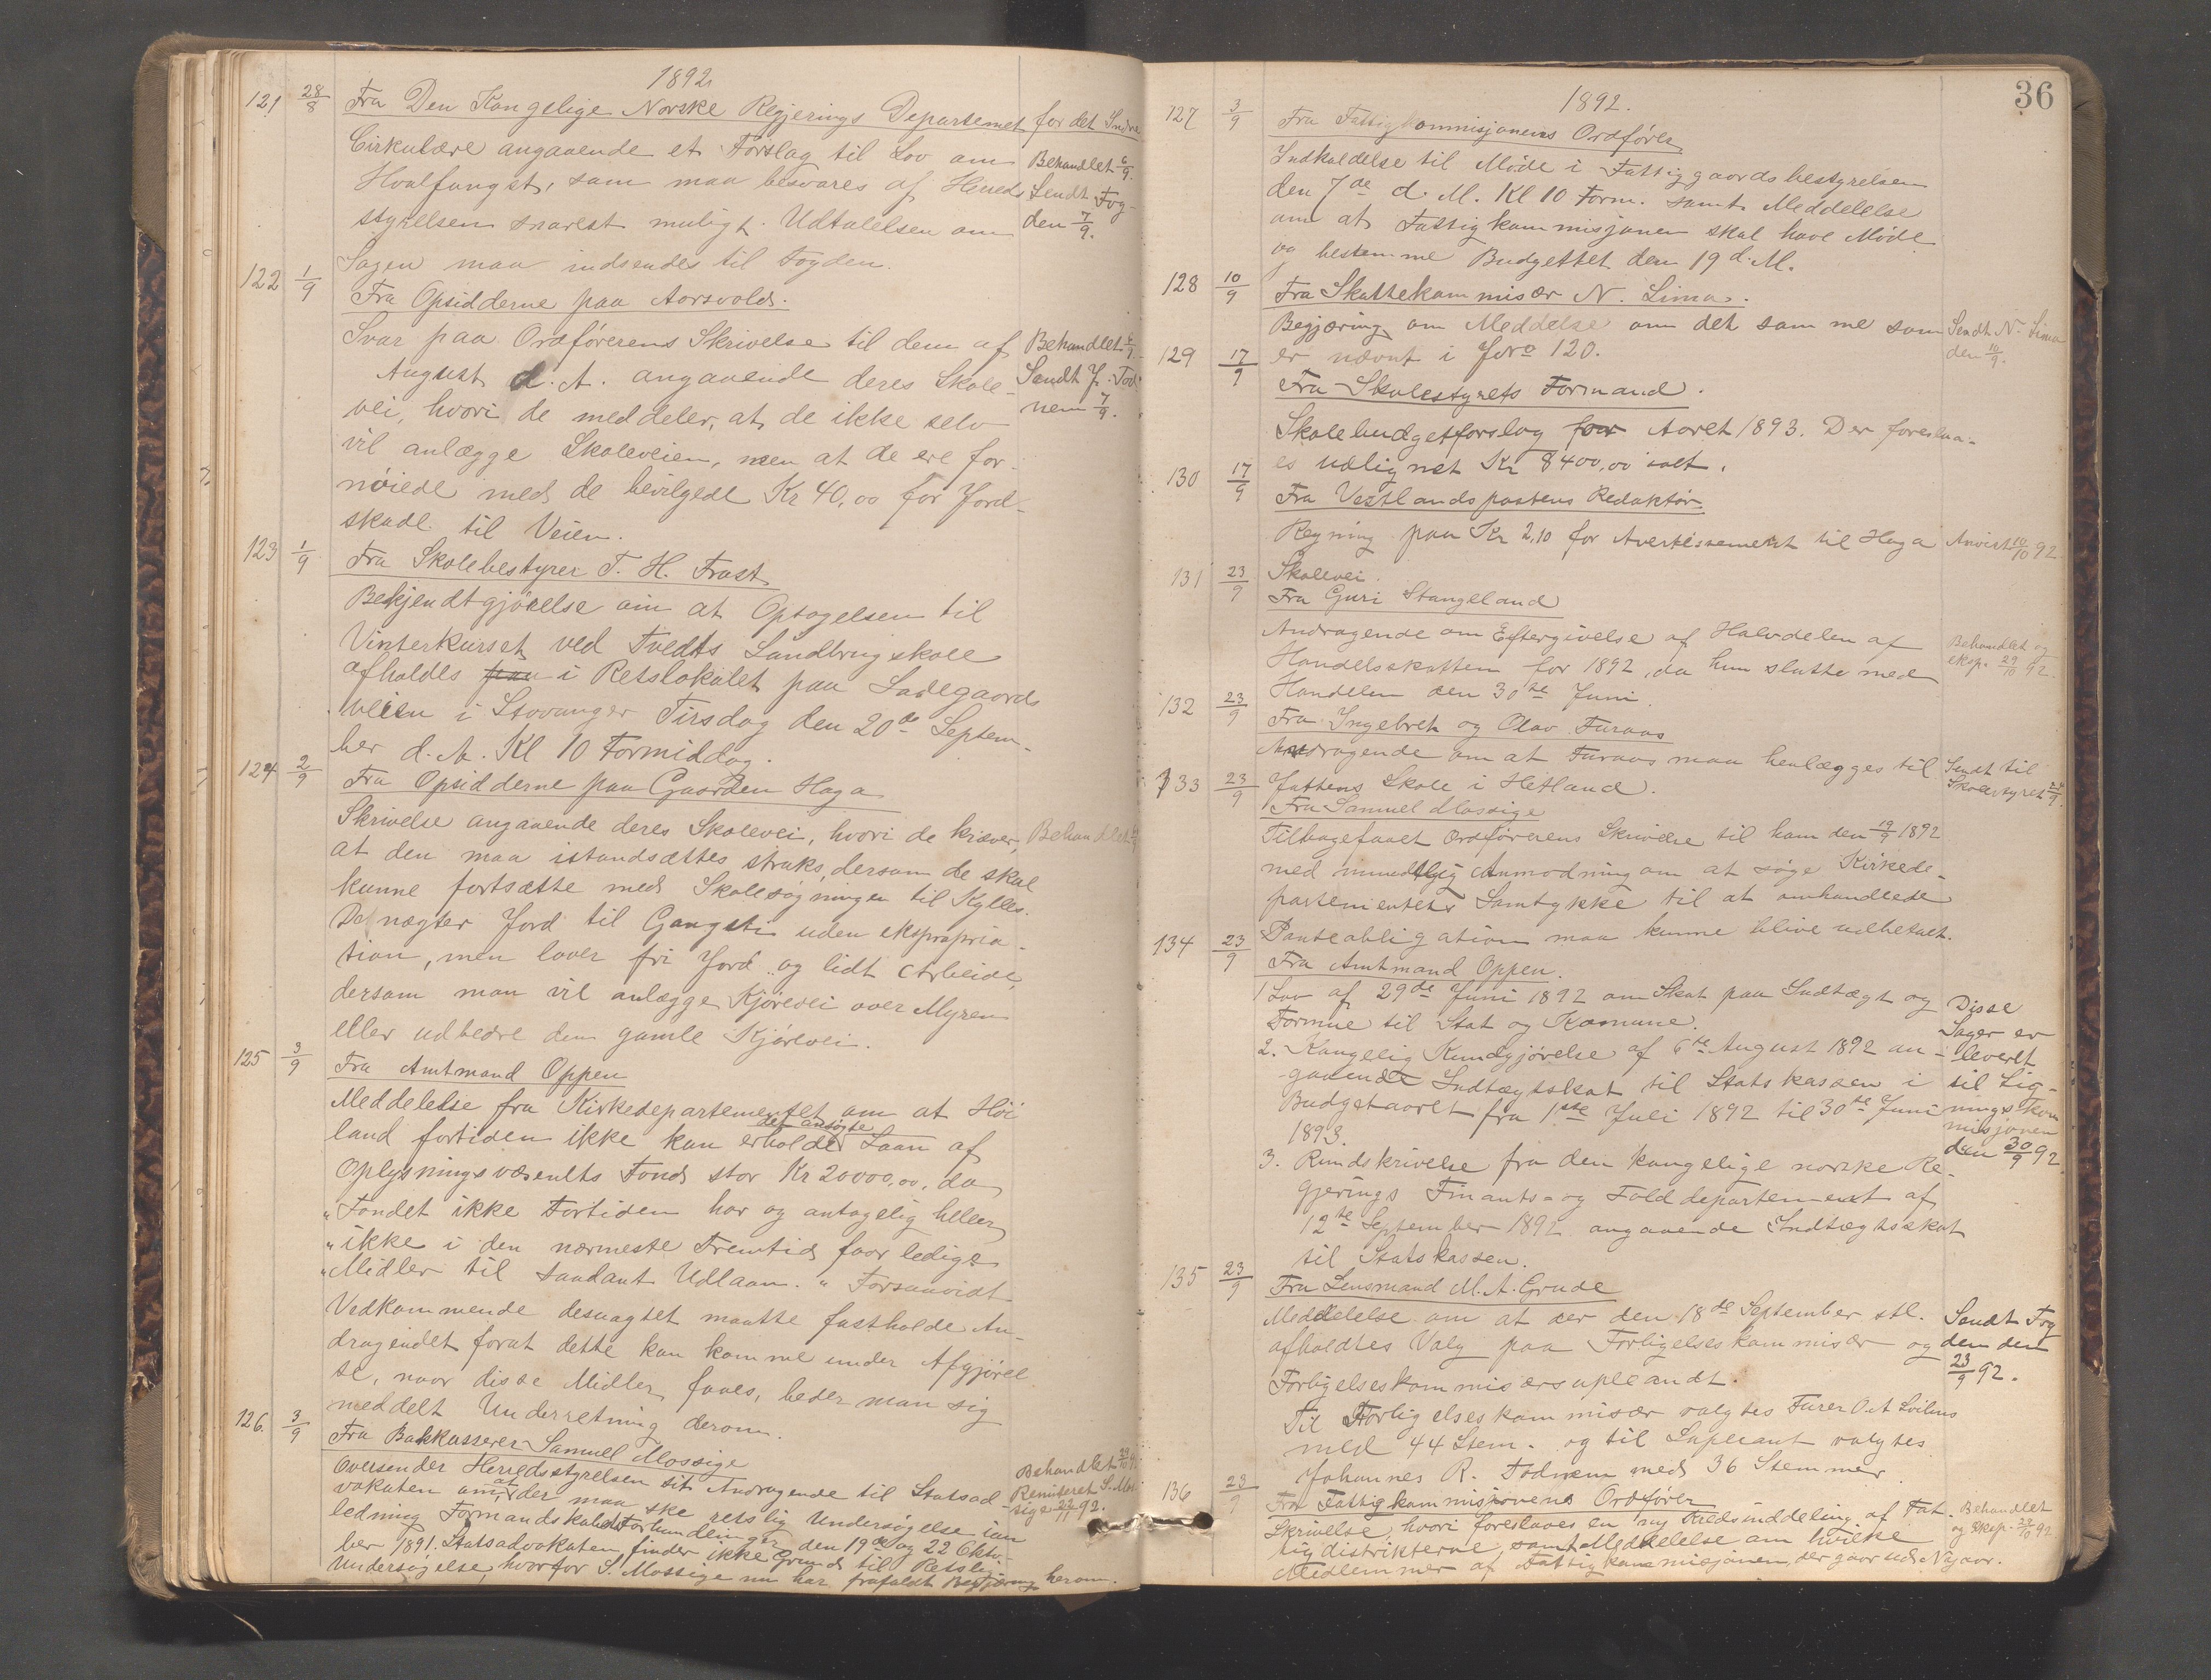 1892
121 28/8 Fra Den Kongelige Norske Regjerings Departemet for det Indre
Cirkulære angaaende et Forslag til Lov om Behandlet 6/9.
Hvalfangst, som maa besvares af Hereds Sendt Fog-
styrelsen snarest muligt. Udtalelsen om den 7/9.
Sagen maa indsendes til Fogden.
122 1/9 Fra Opsidderne paa Aarsvold.
Svar paa Ordførerens Skrivelse til dem af Behandlet 6/9
August d. A. angaaende deres Skole- Sendt J. Tod-
vei, hvori de meddeler, at de ikke selv nem 7/9.
vil anlægge Skoleveien, men at de ere for-
nøiede med de bevilgede Kr 40,00 for Jord-
skade til Veien.
123 1/9 Fra Skolebestyrer T. H. Frast
Bekjendtgjørelse om at Optagelsen til
Vinterkurset ved Tvedts Landbrugskole
afholdes paa i Retslokalet paa Ladegaards
veien i Stavanger Tirsdag den 20de Septem-
ber d. A. Kl 10 Formiddag.
124 2/9 Fra Opsidderne paa Gaarden Haga
Skrivelse angaaende deres Skolevei, hvori de kræver, Behandlet
at den maa istandsættes straks, dersom de skal
kunne fortsætte med Skolesøgningen til Kylles.
De nægter Jord til Gangsti uden ekspropria-
tion, men lover fri Jord og lidt Arbeide,
dersom man vil anlægge Kjørevei over Myren
eller udbedre den gamle Kjørevei.
125 3/9 Fra Amtmand Oppen
Meddelelse fra Kirkedepartementet om at Høi
det ansøgte
land fortiden ikke kan erholde Laan af
Oplysningsvæsenets Fond stor Kr 20000,00, da
"Fondet ikke Fortiden har og antagelig heller
"ikke i den nærmeste Fremtid faar ledige
"Midler til saadant Udlaan." Forsaavidt
Vedkommende desuagtet maatte fastholde An-
dragendet forat dette kan komme under Afgjørel
se, naar disse Midler faaes, beder man sig
meddelt Underretning derom.
126. 3/9 Fra Bankkasserer Samuel Mossige
Oversender Herredsstyrelsen sit Andragende til Statsad- Behandlet 29/10
vokaten om, at der maa ske retslig Undersøgelse i an Remiteret S. Mos-
ledning Formandskabets Forhandlinger den 19de og 22 Okto- sige 22/11 92.
ber 1891. Statsadvokaten finder ikke Grund til Retslig
Undersøgelse, hvorfor S. Mossige nu har frafaldt Begjæring herom.
36
1892.
127 3/9 Fra Fattigkommisjonens Ordfører
Indkaldelse til Møde i Fattiggaardsbestyrelsen
den 7de d. M. Kl 10 Form. samt Meddelelse
om at Fattigkommisjonen skal have Møde
og bestemme Budgettet den 19 d. M.
128 10/9 Fra Skattekommisær N. Lima.
Begjæring om Meddelse om det samme som Sendt N. Lima
er nævnt i JNo 120. den 10/9.
129 17/9 Fra Skolestyrets Formand.
Skolebudgetforslag for Aaret 1893. Der foreslaa-
es udlignet Kr 8400,00 ialt.
130 17/9 Fra Vestlandspostens Redaktør
Regning paa Kr 2,10 for Avertissement til Haga Anvist 10/10 92
Skolevei.
131 23/9 Fra Guri Stangeland
Andragende om Eftergivelse af Halvdelen af Behandlet og
Handelsskatten for 1892, da hun slutte med eksp. 29/10 92.
Handelen den 30te Juni.
132 23/9 Fra Ingebret og Olav Furaas
Andragende om at Furaas maa henlægges til Sendt til
Jattens Skole i Hetland. Skolestyret 24/9.
133 23/9 Fra Samuel Mossige
Tilbagefaaet Ordførerens Skrivelse til ham den 19/9 1892
med mundtlig Anmodning om at søge Kirkede-
partementets Samtykke til at omhandlede
Panteobligation maa kunne blive udbetalt.
134 23/9 Fra Amtmand Oppen.
1 Lov af 29de Juni 1892 om Skat paa Indtægt og Disse
Formue til Stat og Komune. Sager er
2. Kongelig Kundgjørelse af 6te August 1892 an- leveret
gaaende Indtægtsskat til Statskassen i til Lig-
Budgetaaret fra 1ste Juli 1892 til 30te Juni ningskom
1893. misjonen
den 30/9 92.
3. Rundskrivelse fra den kongelige norske Re-
gjerings Finants- og Tolddepartement af
12te September 1892 angaaende Indtægtsskat
til Statskassen.
135 23/9 Fra Lensmand M. A. Grude
Meddelelse om at der den 18de September stl. Sendt Fog
afholdtes Valg paa Forligelseskommisær og den den
Forligelseskommisærsupleandt. 23/9 92.
Til Forligelseskommisær valgtes Furer O. A Lvilius
med 44 Stem. og til Supleant valgtes
Johannes R. Todnem med 36 Stemmer.
136 23/9 Fra Fattigkommisjonens Ordfører
Skrivelse, hvori foreslaaes en ny Kredsinddeling af Fat- Behandlet
tigdistrikterne samt Meddelelse om hvilke og Eksp. 29/10 92
Medlemmer af Fattigkommisjonen, der gaar ud Nyaar.